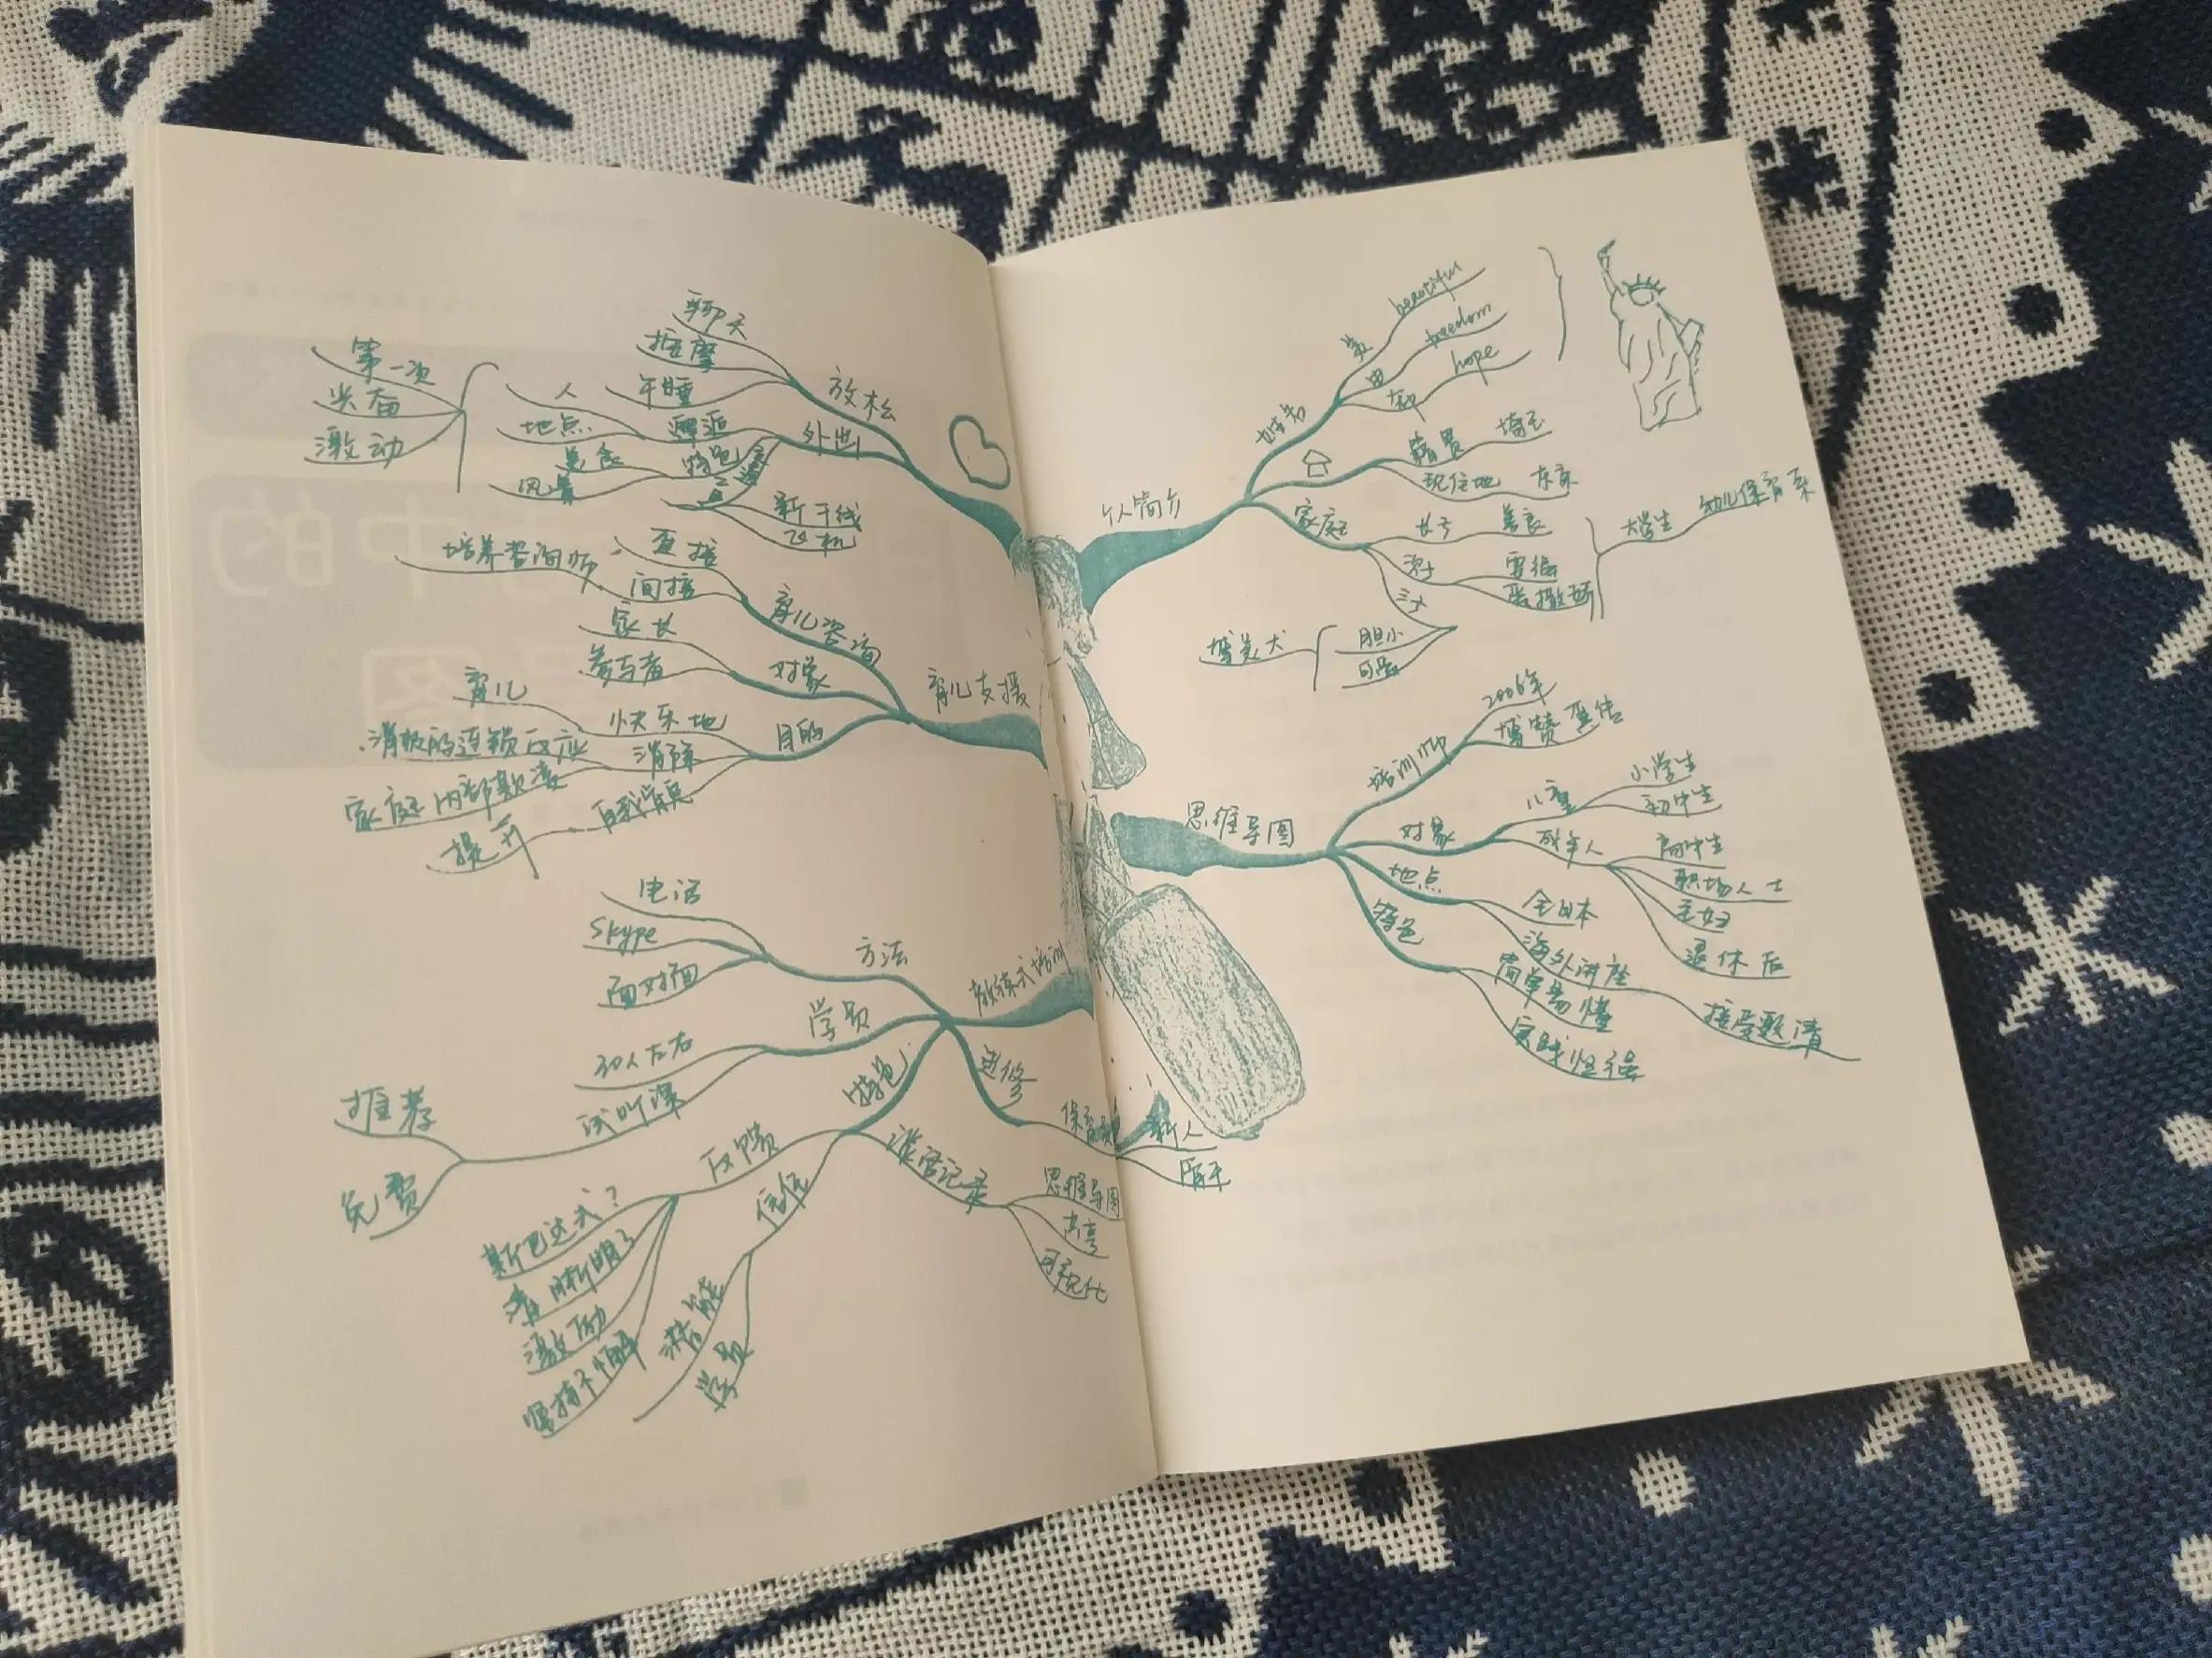 聊天
按摩
午睡
放松
第一次
兴奋
激动
人
地点
邂逅
美食
风景
特色
外出
交通
新干线
飞机
培养咨询师
直接
间接
育儿咨询
家长
参与者
对象
育儿支援
育儿
快乐地
消极的连锁反应
消除
目的
提升
自我肯定
电话
Skype
面对面
方法
教练式培训
30人左右
学员
试听课
推荐
免费
特色
进修
保育员
新人
骨干
反馈
斯巴达式?
清晰明了
激励
坚持不懈
信任
潜能
学员
谈话记录
思维导图
共享
可视化
个人简介
姓名
美
beautiful
由
freedom
hope
籍贯
埼玉
现住地
东京
家庭
长子
善良
次子
爱撒娇
大学生
幼儿保育系
博美犬
胆小
可爱
思维导图
培训师
2006年
博赞
对象
儿童
小学生
初中生
成年人
高中生
职场人士
主妇
退休后
地点
全日本
海外讲座
接受邀请
特色
简单易懂
实践性强